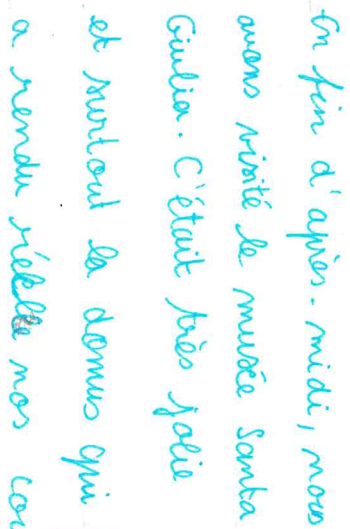 En fin d'après-midi, nous
avons visité le musée Santa
Giulia. C'était très jolie
et surtout la domus qui
a rendu réelle nos